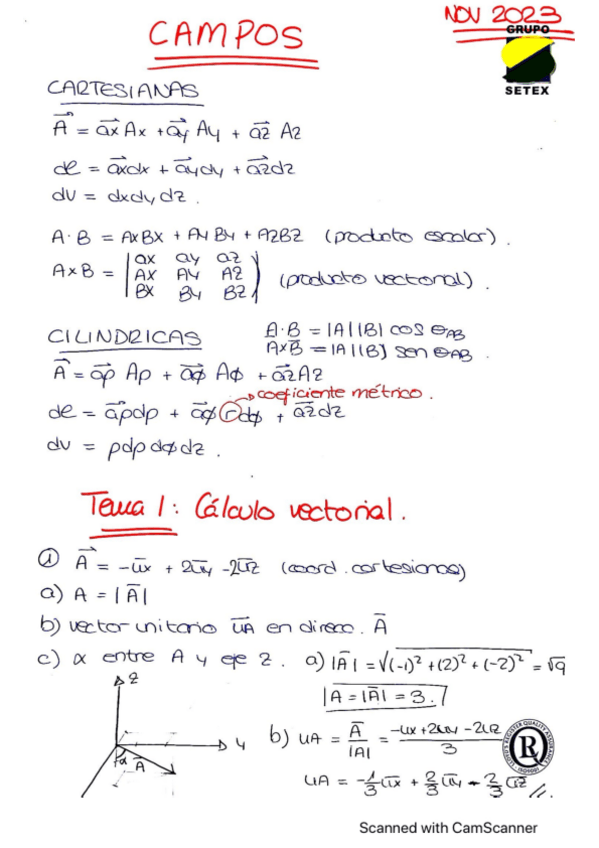 NOV 2023
CAMPOS
GRUPO
SETEX
CARTESIANAS
A⃗ = a⃗x Ax + a⃗y Ay + a⃗z Az
dl = a⃗xdx + a⃗ydy + a⃗zdz
dv = dxdydz.
A·B = AxBx + AyBy + AzBz (producto escalar).
AxB = | ax ay az |
| Ax Ay Az | (producto vectorial).
| Bx By Bz |
CILINDRICAS
A·B = |A||B| cos θAB
AxB = |A||B| sen θAB.
A⃗ = a⃗ρ Aρ + a⃗ϕ Aϕ + a⃗z Az
coeficiente métrico.
dl = a⃗ρdρ + a⃗ϕ r dϕ + a⃗zdz
dv = ρdρdϕdz.
Tema 1: Cálculo vectorial.
① A⃗ = -u̅x + 2u̅y - 2u̅z (coord. cartesianas)
a) A = |A̅|
b) vector unitario u̅A en direcc. A̅
c) α entre A y eje z.
a) |A̅| = √((-1)² + (2)² + (-2)²) = √9
A = |A̅| = 3.
z
y
α
A̅
b) uA = A̅/|A| = (-ux+2uy-2uz)/3
uA = -1/3 u̅x + 2/3 u̅y - 2/3 u̅z //.
R
Scanned with CamScanner